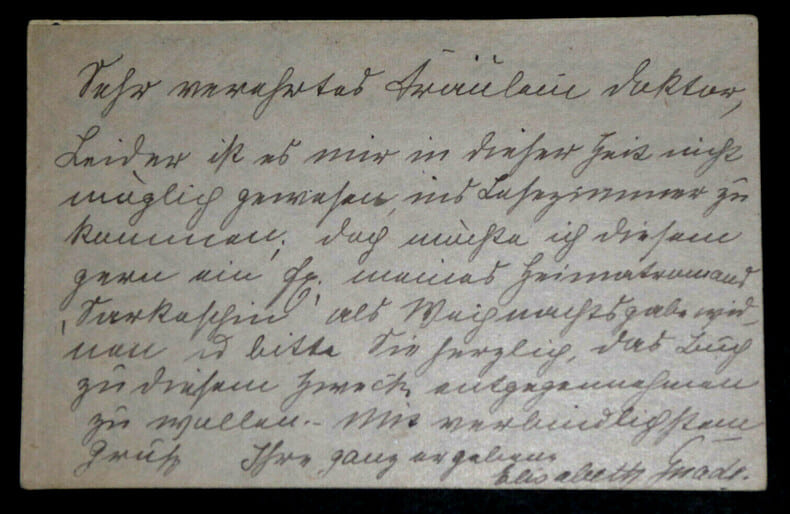 Sehr verehrtes Fräulein Doktor,
Leider ist es mir in dieser Zeit nicht
möglich gewesen, ins Lesezimmer zu
kommen; doch möchte ich diesem
gern ein Ex. meines Heimatromans
„Sarkoschin“ als Weihnachtsgabe wid-
men u bitte Sie herzlich, das Buch
zu diesem Zweck entgegennehmen
zu wollen.- Mit verbindlichstem
Gruß Ihre ganz ergebene
Elisabeth Gnade.